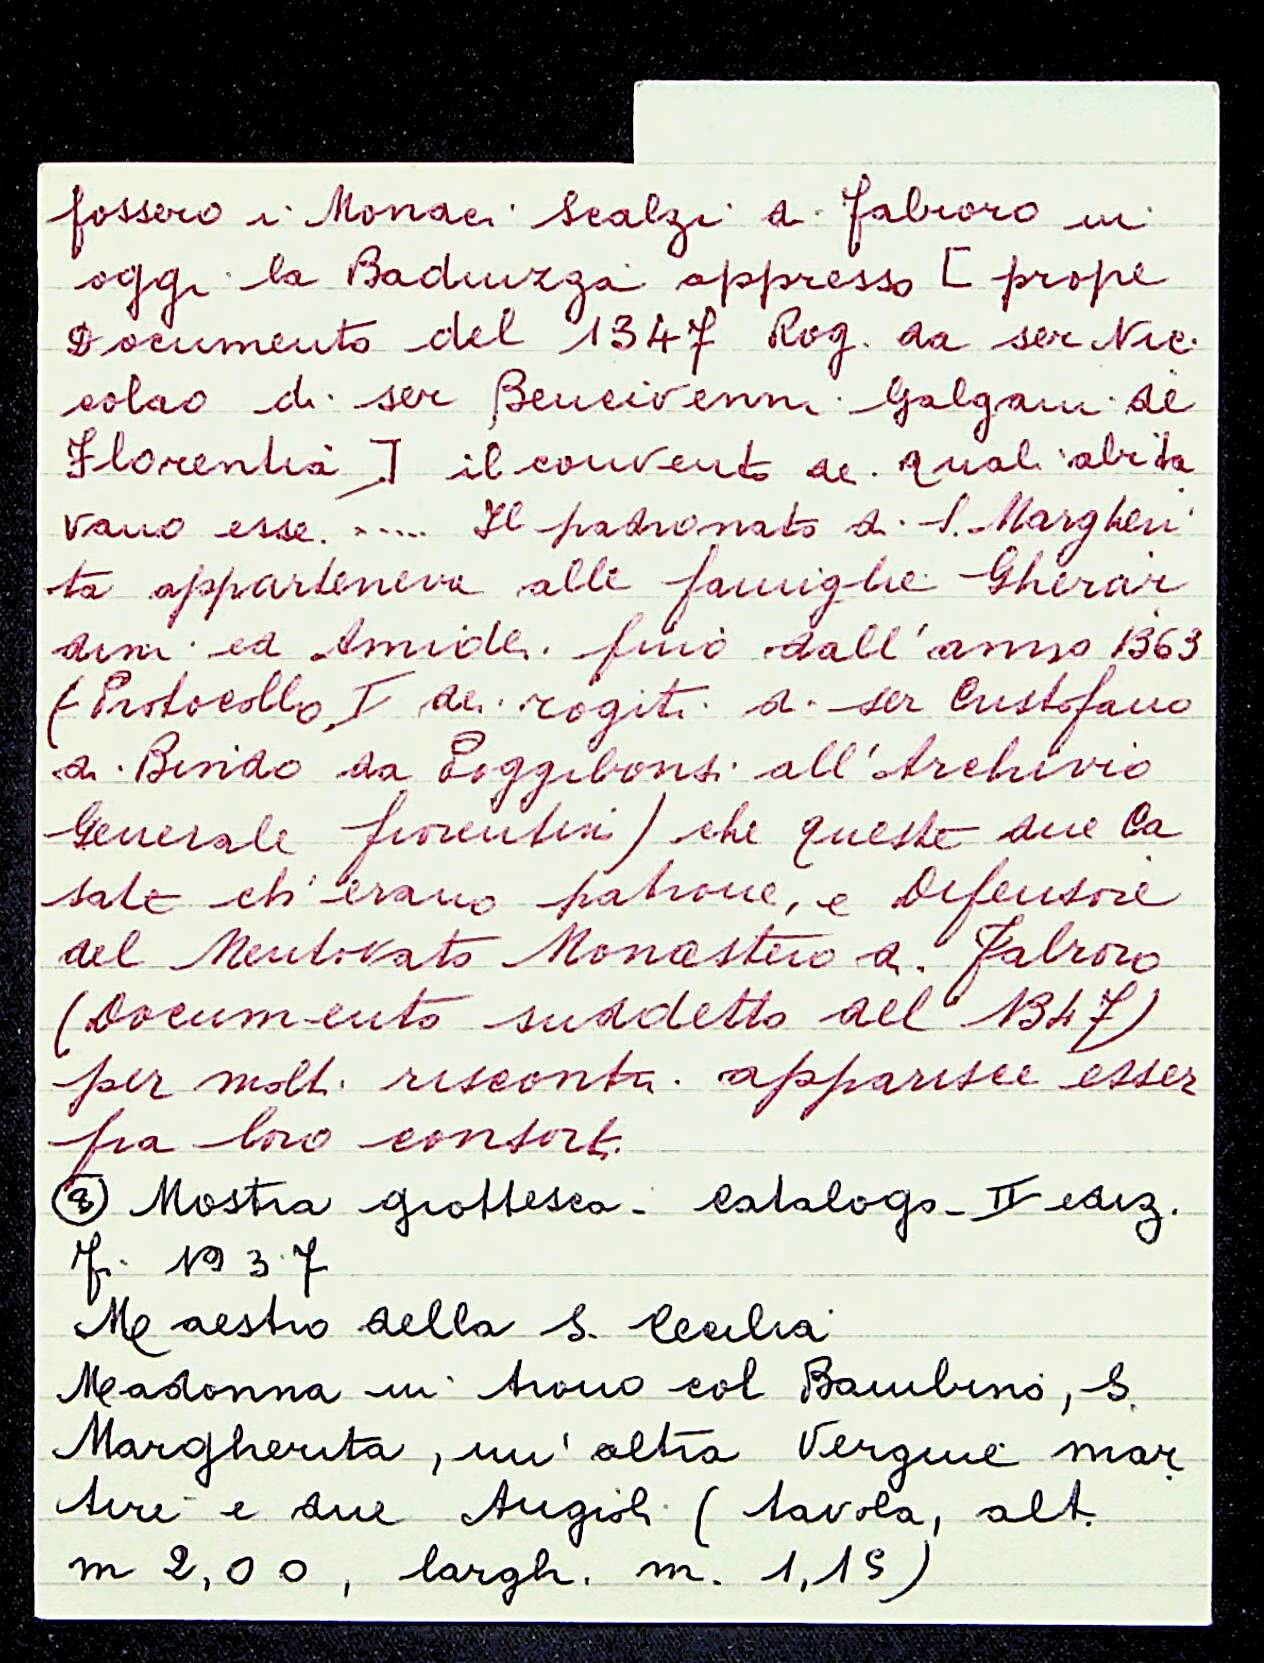 fossero i Monaci Scalzi di Fabroro in
oggi la Badiuzza appresso [ prope
Documento del 1347 Rog. da ser Nic
colao di ser Bencivenni Galgani de
Florentia ] il convento de quali abita
vano esse ..... Il padronato di S. Margheri
ta apparteneva alle famiglie Gherar
dini ed Amidei fino dall'anno 1363
(Protocollo I de rogiti di ser Cristofano
di Bindo da Poggibonsi all'Archivio
Generale fiorentino) che queste due Ca
sate ch'erano patrone, e Difensore
del Mentovato Monastero di Fabroro
(Documento suddetto del 1347)
per molti riscontri apparisce esser
fra loro consorti.
⑧ Mostra giottesca - Catalogo - II ediz.
F. 1937
Maestro della S. Cecilia
Madonna in trono col Bambino, S.
Margherita, un'altra Vergine mar
tire e due Angioli (tavola, alt.
m 2,00, largh. m. 1,15)